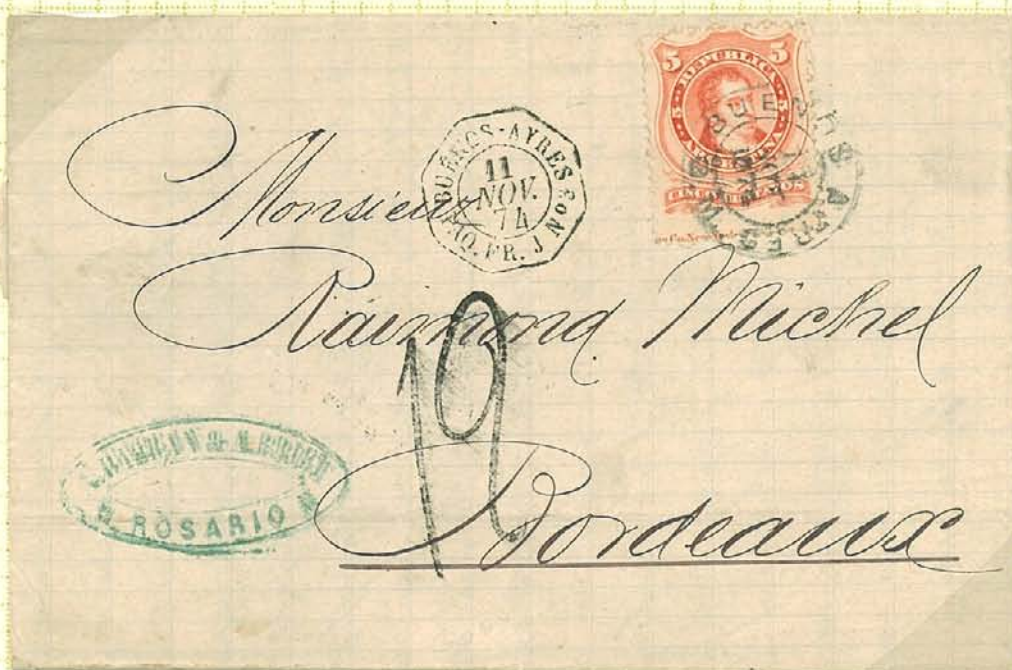 5 REPUBLICA 5
ARGENTINA
CINCO CENTAVOS
BUENOS AIRES
BUÉNOS-AYRES
11
NOV.
74
PAQ. FR. J No
Monsieur
Raimond Michel
12
Bordeaux
ROSARIO